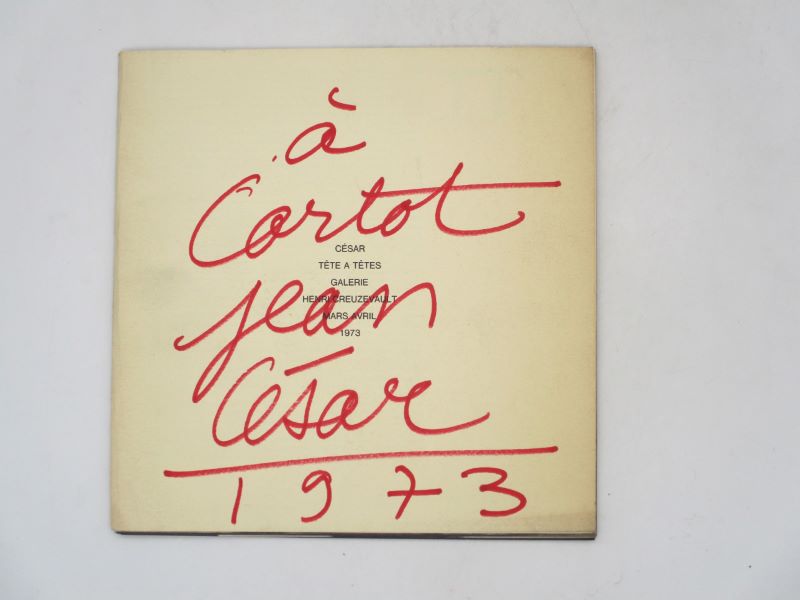 à
Cortot
CÉSAR
TÊTE A TÊTES
GALERIE
HENRI CREUZEVAULT
MARS AVRIL
1973
jean
César
1973